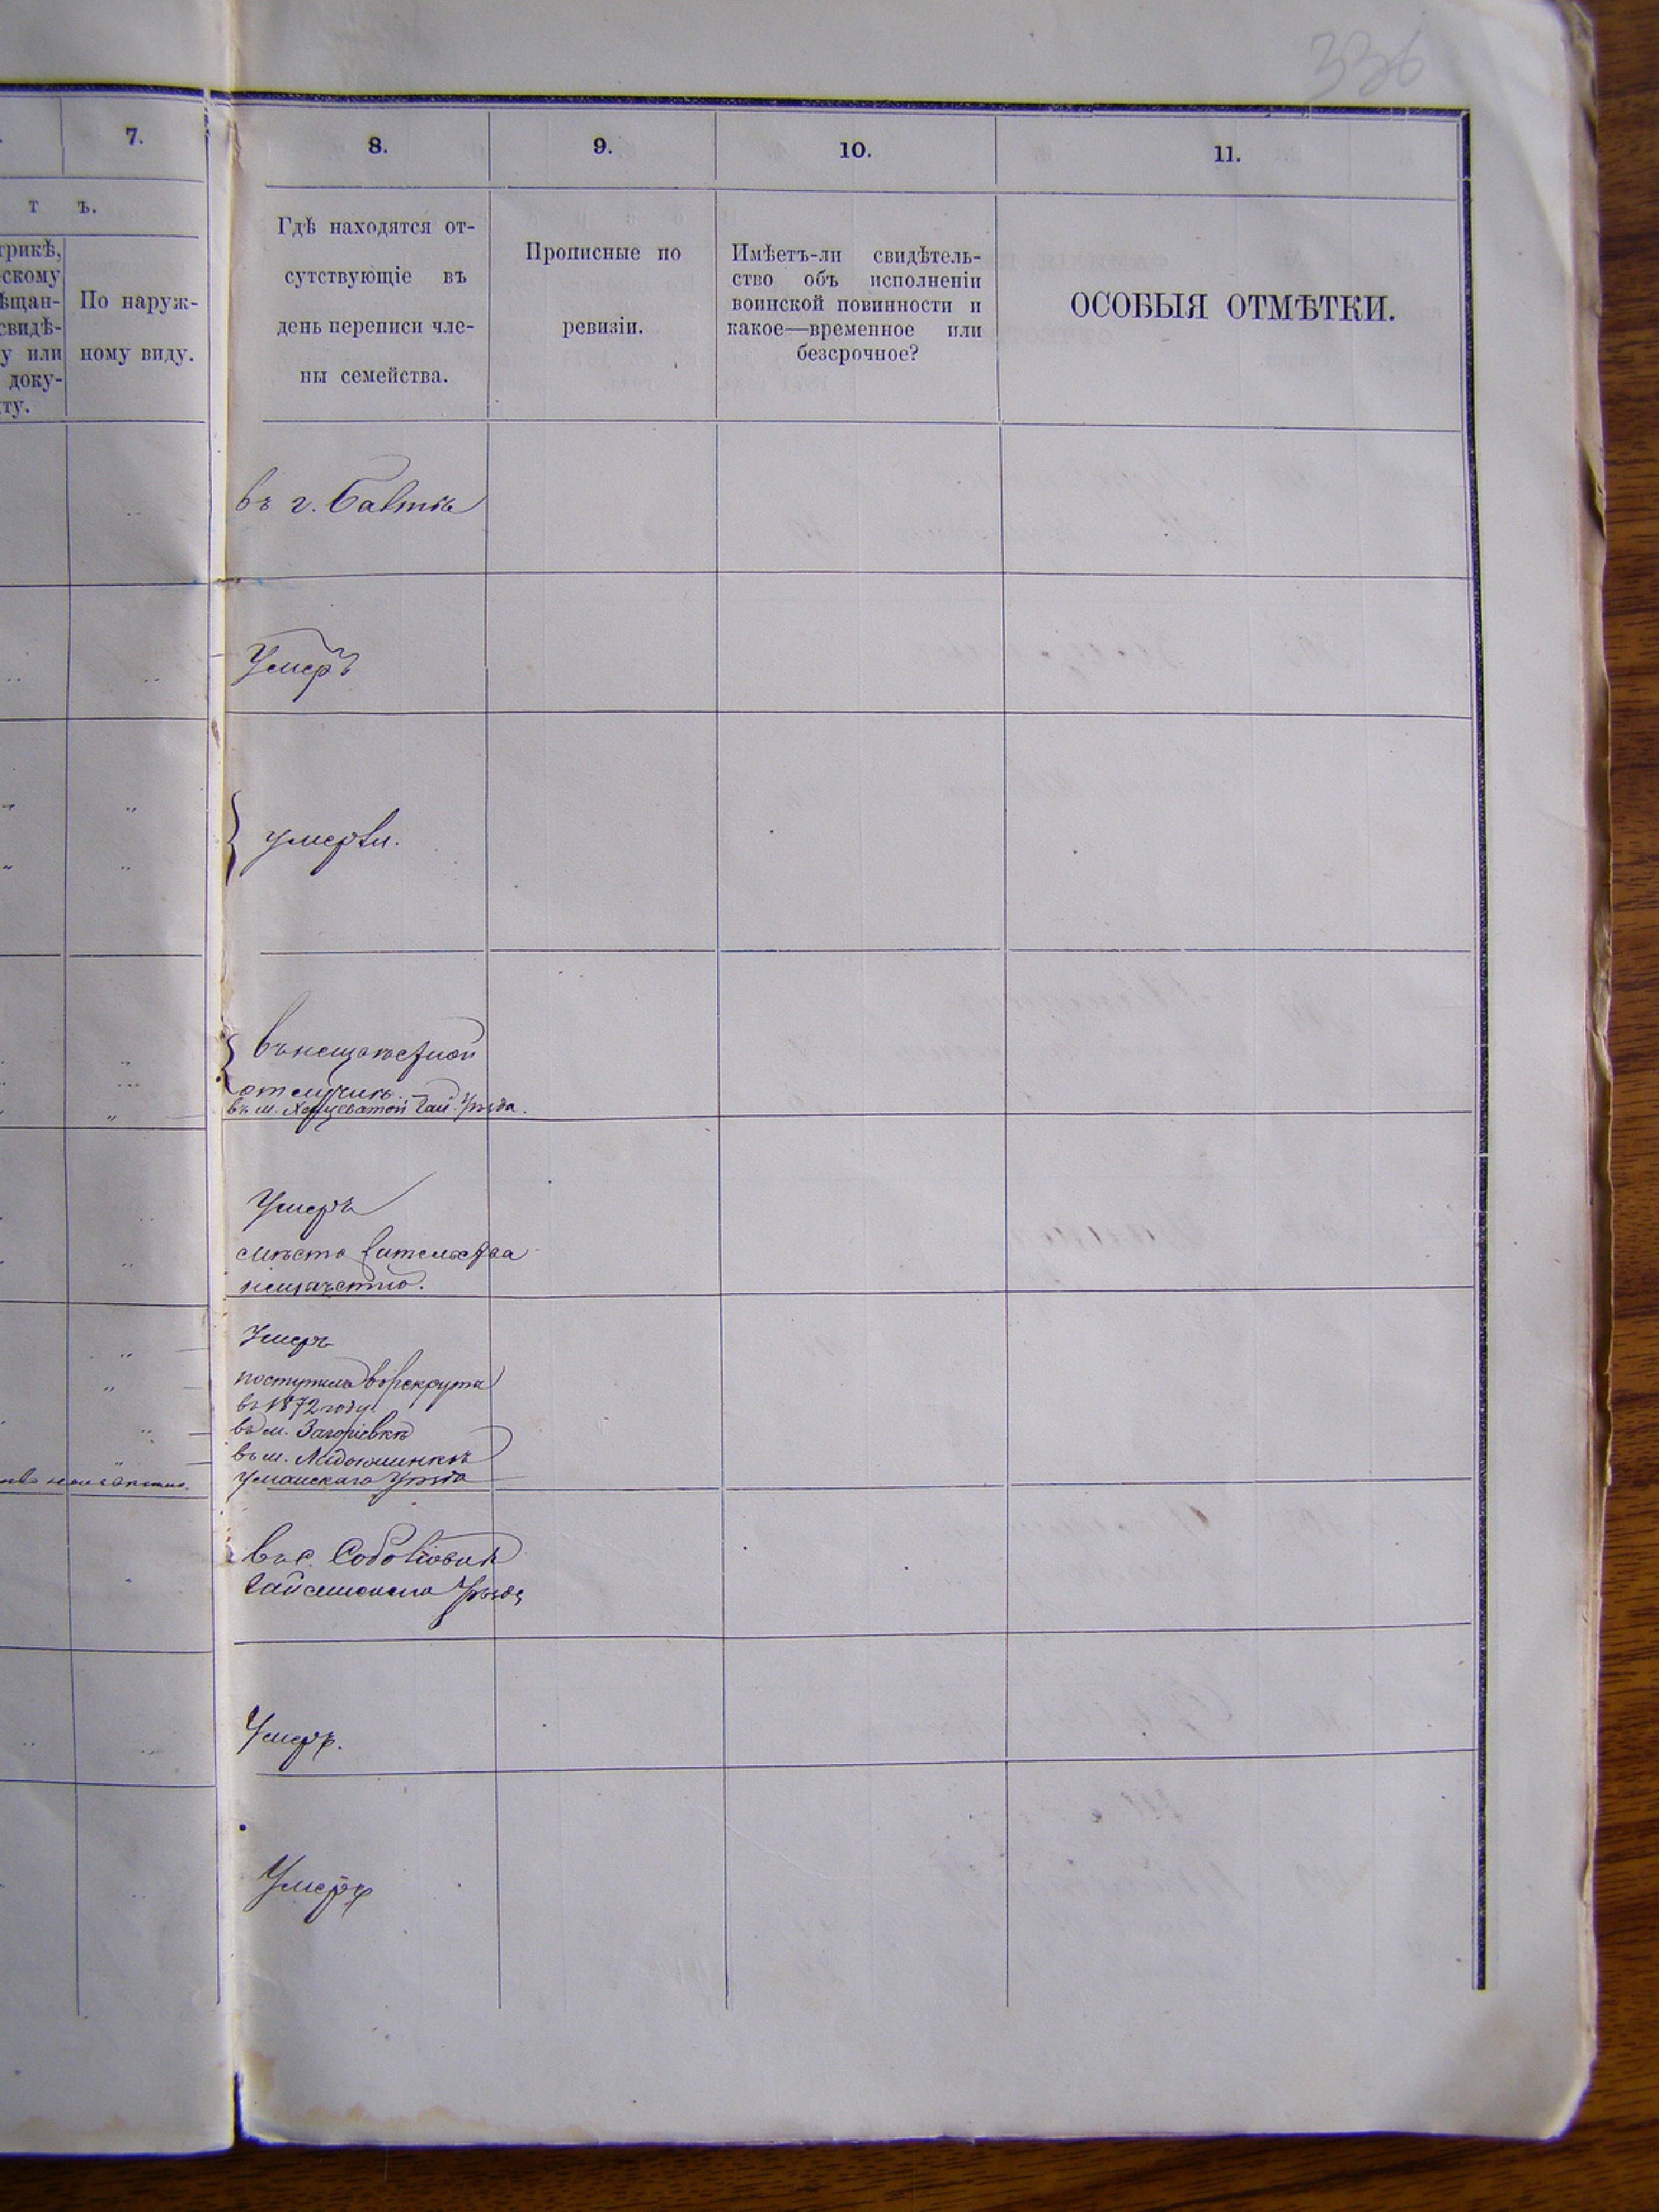 336
7.
8.
9.
10.
11.
т ъ.
трикѣ,
скому
ѣщан-
свидѣ-
у или
доку-
ту.
По наруж-
ному виду.
Гдѣ находятся от-
сутствующіе въ
день переписи чле-
ны семейства.
Прописные по
ревизіи.
Имѣетъ-ли свидѣтель-
ство объ исполненіи
воинской повинности и
какое—временное или
безсрочное?
ОСОБЫЯ ОТМѢТКИ.
въ г. Балтѣ
Умеръ
умерли.
въ неизвѣстной
отлучкѣ.
въ м. Хощеватой Гай. Уѣзда.
Умеръ
мѣсто жительства
неизвѣстно.
Умеръ
поступилъ въ рекруты
въ 1872 году.
въ м.
въ м.
Уманскаго Уѣзда
неизвѣстно.
въ с.
Гайсинскаго Уѣзда
Умеръ.
Умеръ